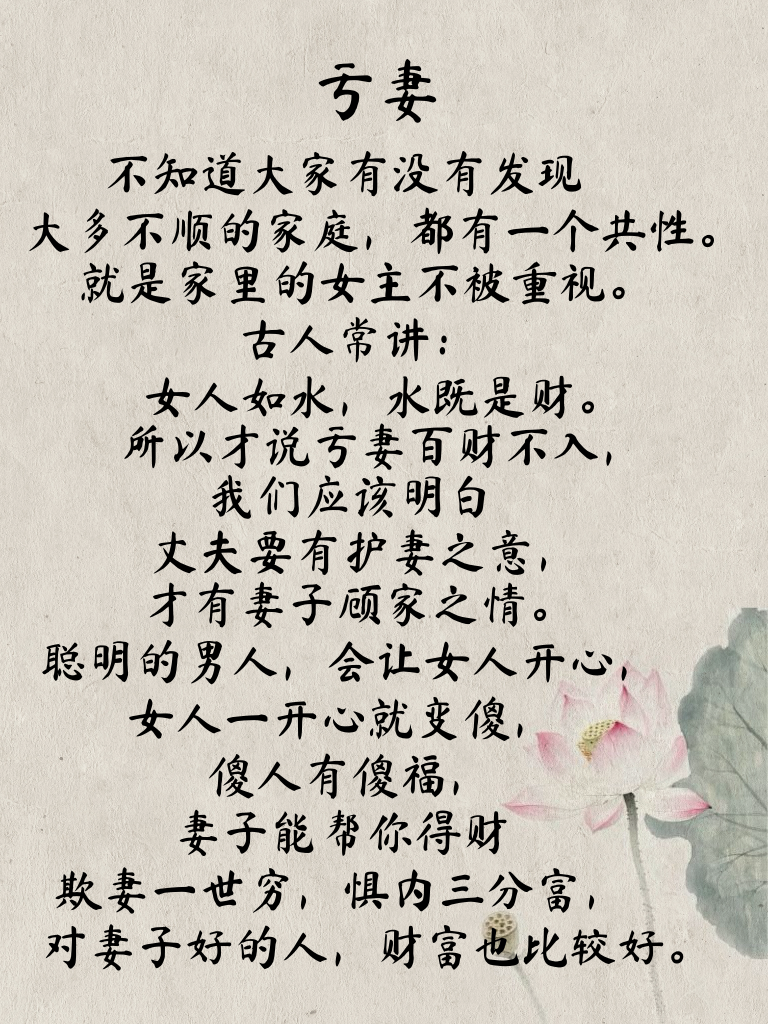 亏妻
不知道大家有没有发现
大多不顺的家庭，都有一个共性。
就是家里的女主不被重视。
古人常讲：
女人如水，水既是财。
所以才说亏妻百财不入，
我们应该明白
丈夫要有护妻之意，
才有妻子顾家之情。
聪明的男人，会让女人开心，
女人一开心就变傻，
傻人有傻福，
妻子能帮你得财
欺妻一世穷，惧内三分富，
对妻子好的人，财富也比较好。